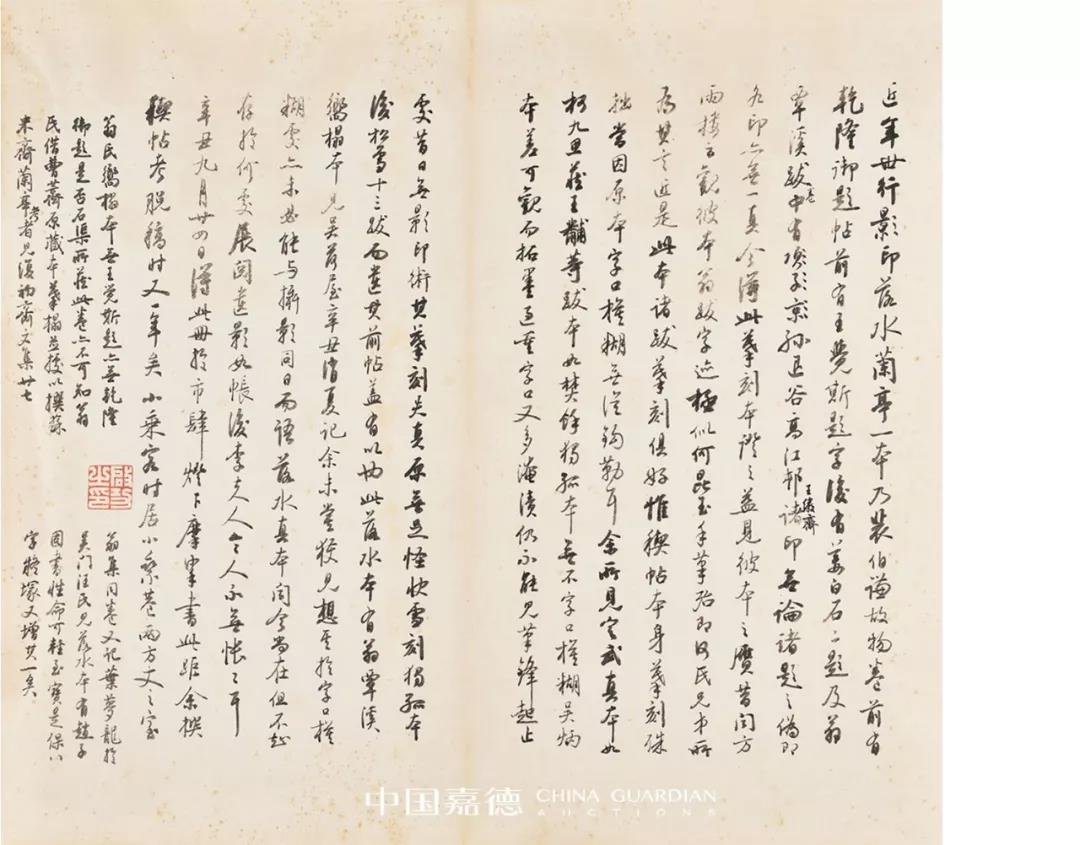 近年世行影印落水蘭亭一本乃裴伯謙故物卷前有
乾隆御題帖前有王覺斯題字後有姜白石二題及翁
覃溪長跋中有俊齋孫退谷高江邨王儼齋諸印無論諸題之偽即
各印亦無一真今薄此摹刻本證之益見彼本之贋昔聞方
雨樓云觀彼本翁跋字迹極似何昆玉手筆殆即何氏兄弟所
為其言近是此本諸跋摹刻俱好惟稧帖本身摹刻殊
拙當因原本字口模糊無從鉤勒耳余所見定武真本如
柯九思藏王黼等跋本如焚餘獨孤本無不字口模糊吳炳
本差可觀而拓墨過重字口又多淹漬仍不能見筆鋒起止
處昔日無影印術其摹刻失真原無足怪快雪刻獨孤本
後松雪十三跋而遺其前帖蓋有以也此落水本有翁覃溪
嚮搨本見吳荷屋辛丑消夏記余未嘗獲見想其於字口模
糊處亦未必能與攝影同日而語落水真本聞今尚在但不知
存於何處展閱遺影如帳後李夫人令人不無悵悵耳
辛丑九月廿四日薄此冊於市肆燈下摩挲書此距余撰
稧帖考脫稿時又一年矣小乘客時居小乘巷兩方丈之室
翁氏嚮搨本無王覺斯題亦無乾隆
御題是否石渠所藏此卷亦不可知翁
氏借曹薺原藏本摹搨並據以撰蘇
米齋蘭亭考者見復初齋文集廿七
啟功之印
翁集同卷又記葉夢龍於
吳門汪氏見落水本有趙子
固書性命可輕至寶是保八
字疑塚又增其一矣
中国嘉德 CHINA GUARDIAN
AUCTIONS